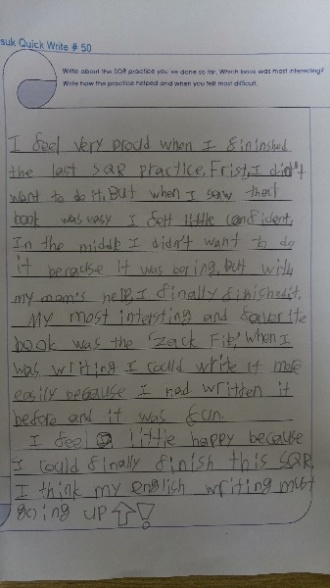 suk Quick Write # 50
Write about the SQR practice you've done so far. Which book was most interesting?
Write how the practice helped and when you felt most difficult.
I feel very proud when I fininshed
the last SQR practice. Frist, I didn't
want to do it. But when I saw that
book was easy I felt little confident,
In the middle I didn't want to do
it beracuse it was boring, but with
my mom's help I finally finishedit.
My most intersting and favorite
book was the "Zack File", When I
was writing I could write it more
easily because I had written it
before and it was fun.
I feel a little happy because
I could finally finish this SQR.
I think my english writing must
going UP ⇧!